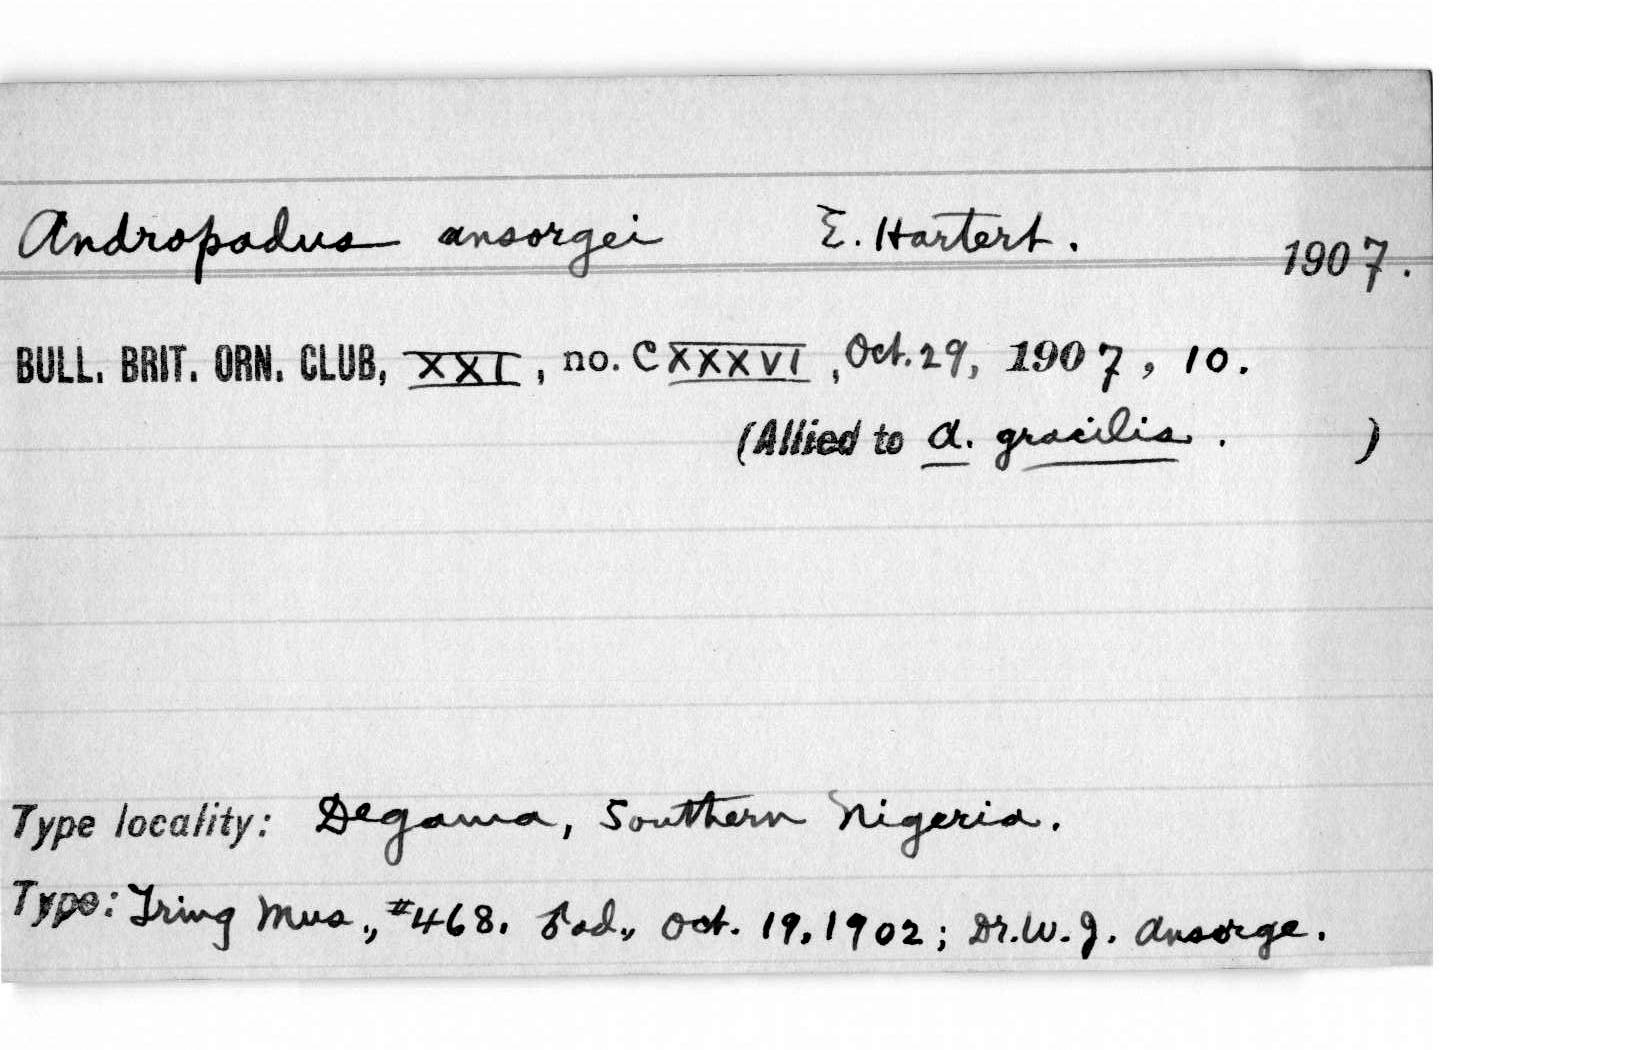 Andropadus ansorgei E. Hartert. 1907.
BULL. BRIT. ORN. CLUB, XXI, no. CXXXVI, Oct. 29, 1907, 10.
(Allied to A. gracilis. )
Type locality: Degama, Southern Nigeria.
Type: Tring Mus., #468. ♂ ad., Oct. 19, 1902; Dr. W. J. Ansorge.